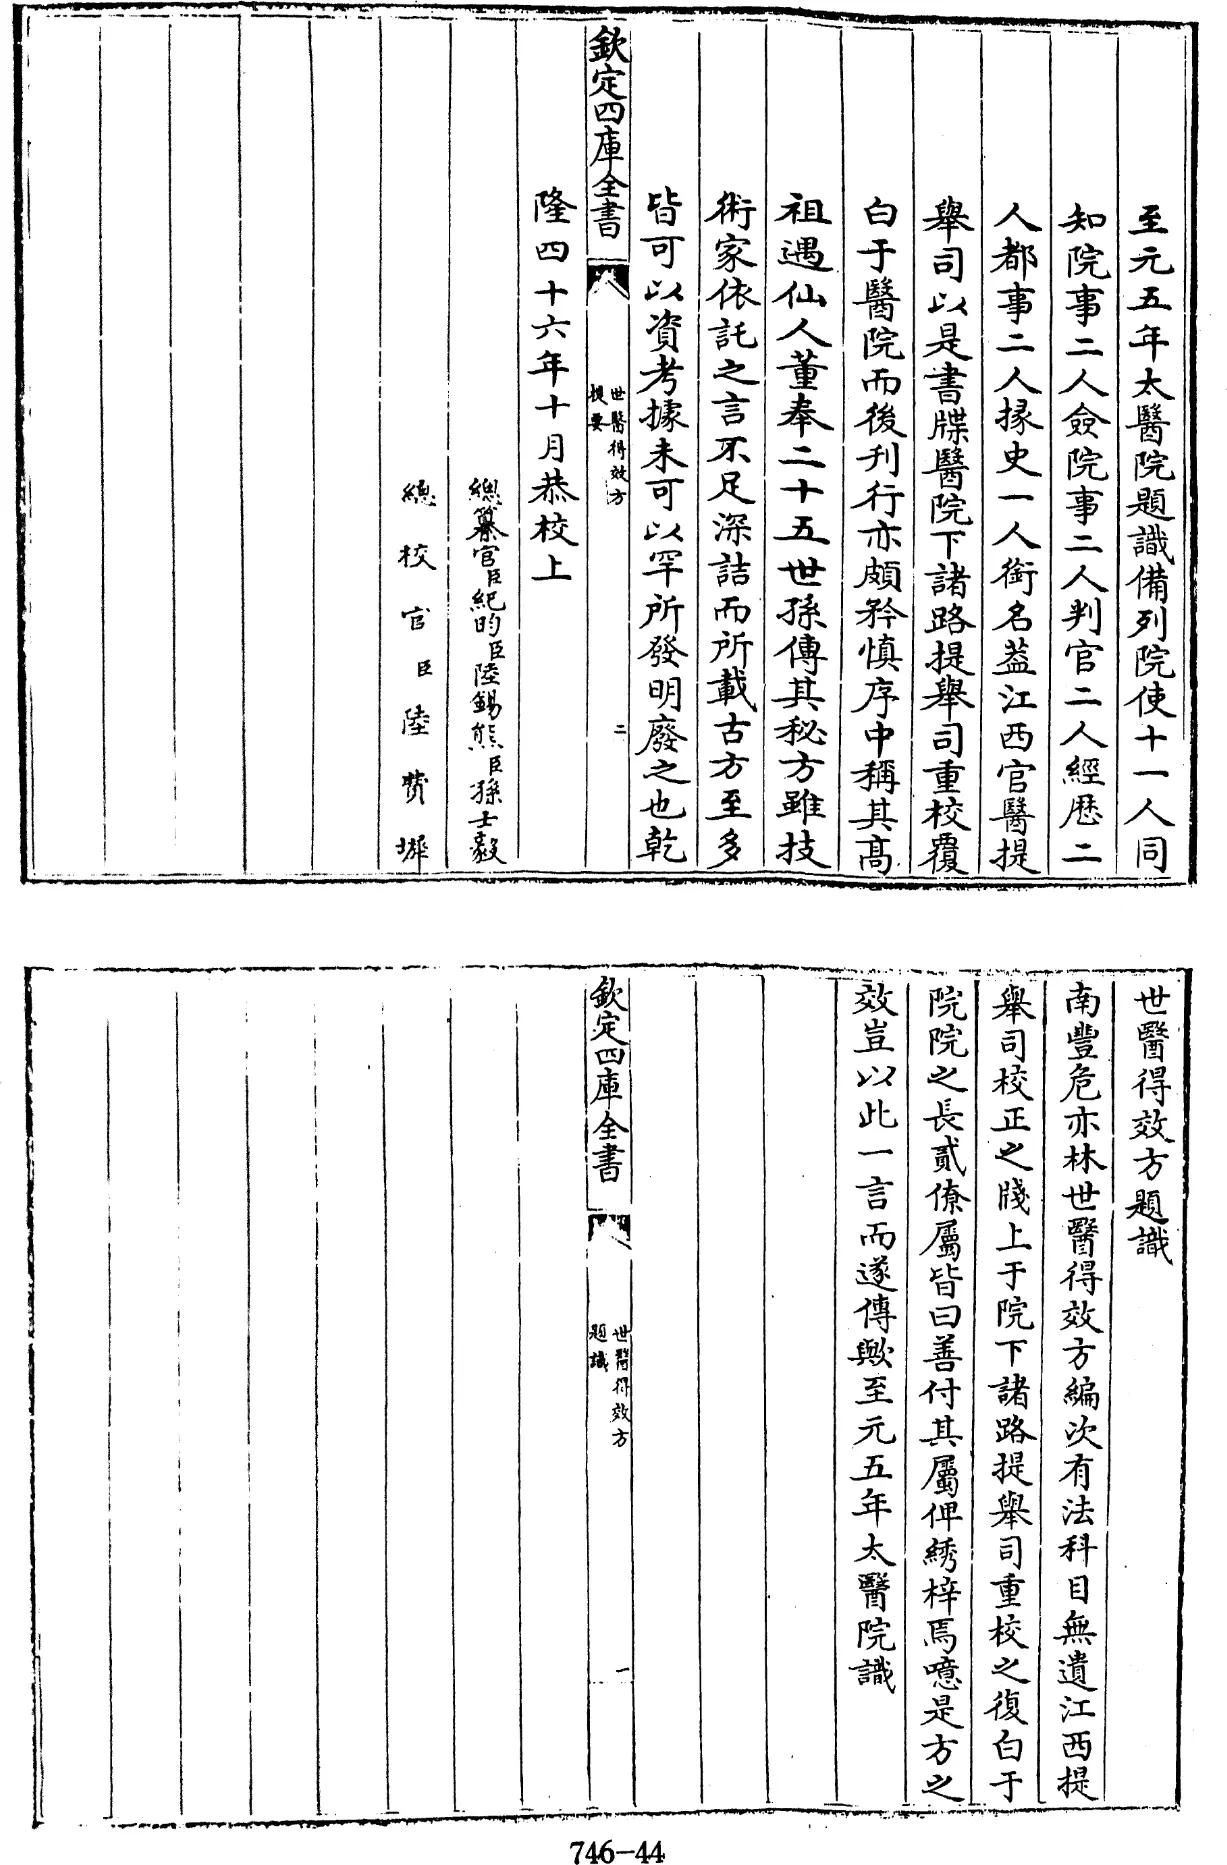 至元五年太醫院題識備列院使十一人同
知院事二人僉院事二人判官二人經歷二
人都事二人掾史一人銜名葢江西官醫提
舉司以是書牒醫院下諸路提舉司重校覆
白于醫院而後刊行亦頗矜慎序中稱其髙
祖遇仙人董奉二十五世孫傳其秘方雖技
術家依託之言不足深詰而所載古方至多
皆可以資考據未可以罕所發明廢之也乾
欽定四庫全書
世醫得效方
提要
二
隆四十六年十月恭校上
總纂官臣紀昀臣陸錫熊臣孫士毅
總校官臣陸費墀
世醫得效方題識
南豐危亦林世醫得效方編次有法科目無遺江西提
舉司校正之牋上于院下諸路提舉司重校之復白于
院院之長貳僚屬皆曰善付其屬俾綉梓焉噫是方之
效豈以此一言而遂傳歟至元五年太醫院識
欽定四庫全書
世醫得效方
題識
一
746-44